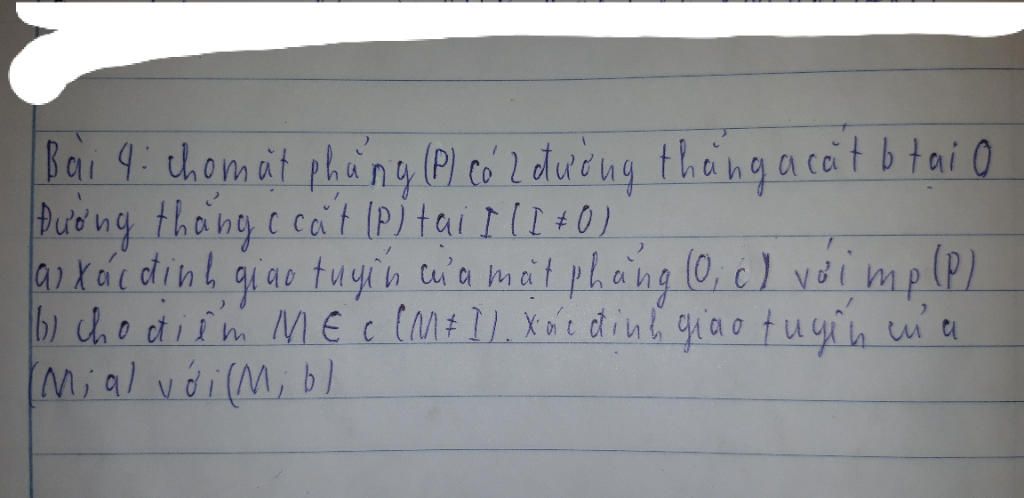 Bài 4: cho mặt phẳng (P) có 2 đường thẳng a cắt b tại O
Đường thẳng c cắt (P) tại I (I ≠ O)
a) Xác định giao tuyến của mặt phẳng (O, c) với mp (P)
b) cho điểm M ∈ c (M ≠ I). Xác định giao tuyến của
(M; a) với (M; b)